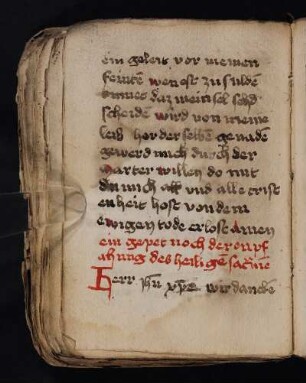 ein geleit vor meinen
feinten wen ost zu sulde
kumet daz mein sel
scheiden wird von meine
leib her derselben genaden
gewerd mich durch der
marter willen do mit
du mich all vnd alle crist
enheit host von dem
ewigen tode erlost Amen
ein gepet noch der enpf
ahung des heilige sacme
Herr ihu xpe wir dancken